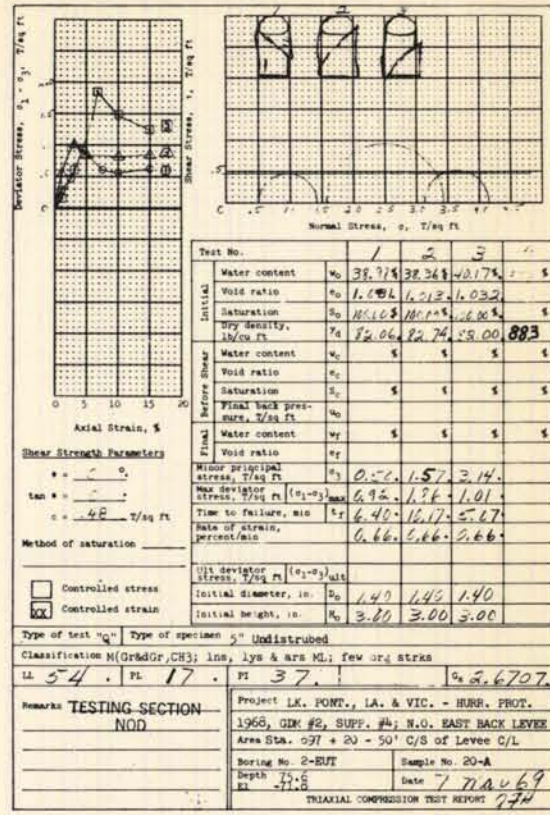 1 2 3
Deviator Stress, σ1 - σ3, T/sq ft
Shear Stress, τ, T/sq ft
.5
0
C .5 1.0 1.5 2.0 2.5 3.0 3.5 4.0 4.5
Normal Stress, σ, T/sq ft
3
2
1
0 5 10 15 20
Axial Strain, %
Shear Strength Parameters
φ = °
tan φ =
c = .48 T/sq ft
Method of saturation
Controlled stress
XX Controlled strain
Test No. 1 2 3
Initial
Water content w0 38.36% 40.17% %
Void ratio e0 1.013. 1.032.
Saturation S0 %
Dry density, lb/cu ft γd 82.06. 82.74. 883
Before Shear
Water content wc % % % %
Void ratio ec
Saturation Sc % % % %
Final back pressure, T/sq ft u0
Final
Water content wf % % % %
Void ratio ef
Minor principal stress, T/sq ft σ3 1.57. 3.14.
Max deviator stress, T/sq ft (σ1-σ3)max 1.01.
Time to failure, min tf 6.40.
Rate of strain, percent/min 0.66. 0.66. 0.66.
Ult deviator stress, T/sq ft (σ1-σ3)ult
Initial diameter, in. D0 1.40 1.40 1.40
Initial height, in. H0 3.00 3.00 3.00
Type of test "Q" Type of specimen 5" Undistrubed
Classification M(Gr&dGr,CH3; lns, lys & ars ML; few org strks
LL 54. PL 17. PI 37. Gs 2.6707.
Remarks TESTING SECTION
NOD
Project LK. PONT., LA. & VIC. - HURR. PROT.
1968, GDM #2, SUPP. #4; N.O. EAST BACK LEVEE
Area Sta. 697 + 20 - 50' C/S of Levee C/L
Boring No. 2-EUT Sample No. 20-A
Depth 75.6
El -71.6
Date 7 Nov 69
TRIAXIAL COMPRESSION TEST REPORT